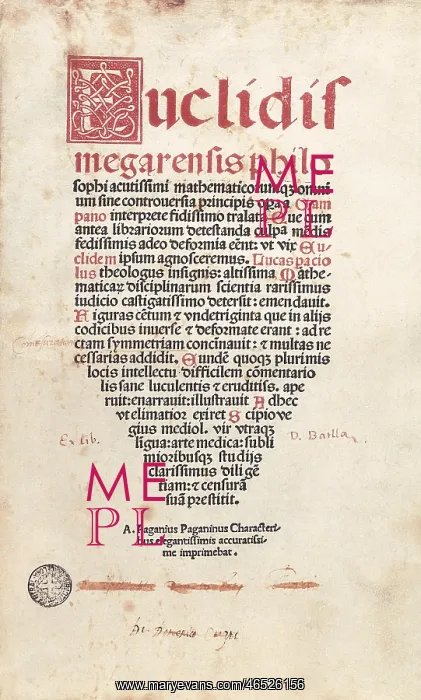 Euclidis
megarensis philo
sophi acutissimi mathematicorumqꝫ omni
um sine controuersia principis opera Cam
pano interprete fidissimo tralata: Que cum
antea librariorum detestanda culpa mēdis
fedissimis adeo deformia eēnt: vt vix Eu-
clidem ipsum agnosceremus. Lucas pacio
lus theologus insignis: altissima Mathe-
maticaꝝ disciplinarum scientia rarissimus
iudicio castigatissimo detersit: emendauit.
Figuras cētum ⁊ vndetriginta que in alijs
codicibus inuerse ⁊ deformate erant: ad re
ctam symmetriam concinnauit: ⁊ multas ne
cessarias addidit. Eundē quoqꝫ plurimis
locis intellectu difficilem cōmentario
lis sane luculentis ⁊ eruditiss. ape
ruit: enarrauit: illustrauit Adhec
vt elimatior exiret Scipio ve
gius mediol. vir vtraqꝫ
lingua: arte medica: subli
mioribusqꝫ studijs
clarissimus diligē
tiam: ⁊ censurā
suā prestitit.
Ex lib. D. Barlla
A. Paganius Paganinus Characteri-
bus elegantissimis accuratissi-
me imprimebat.
ME
PL
ME
PL
www.maryevans.com/46526156